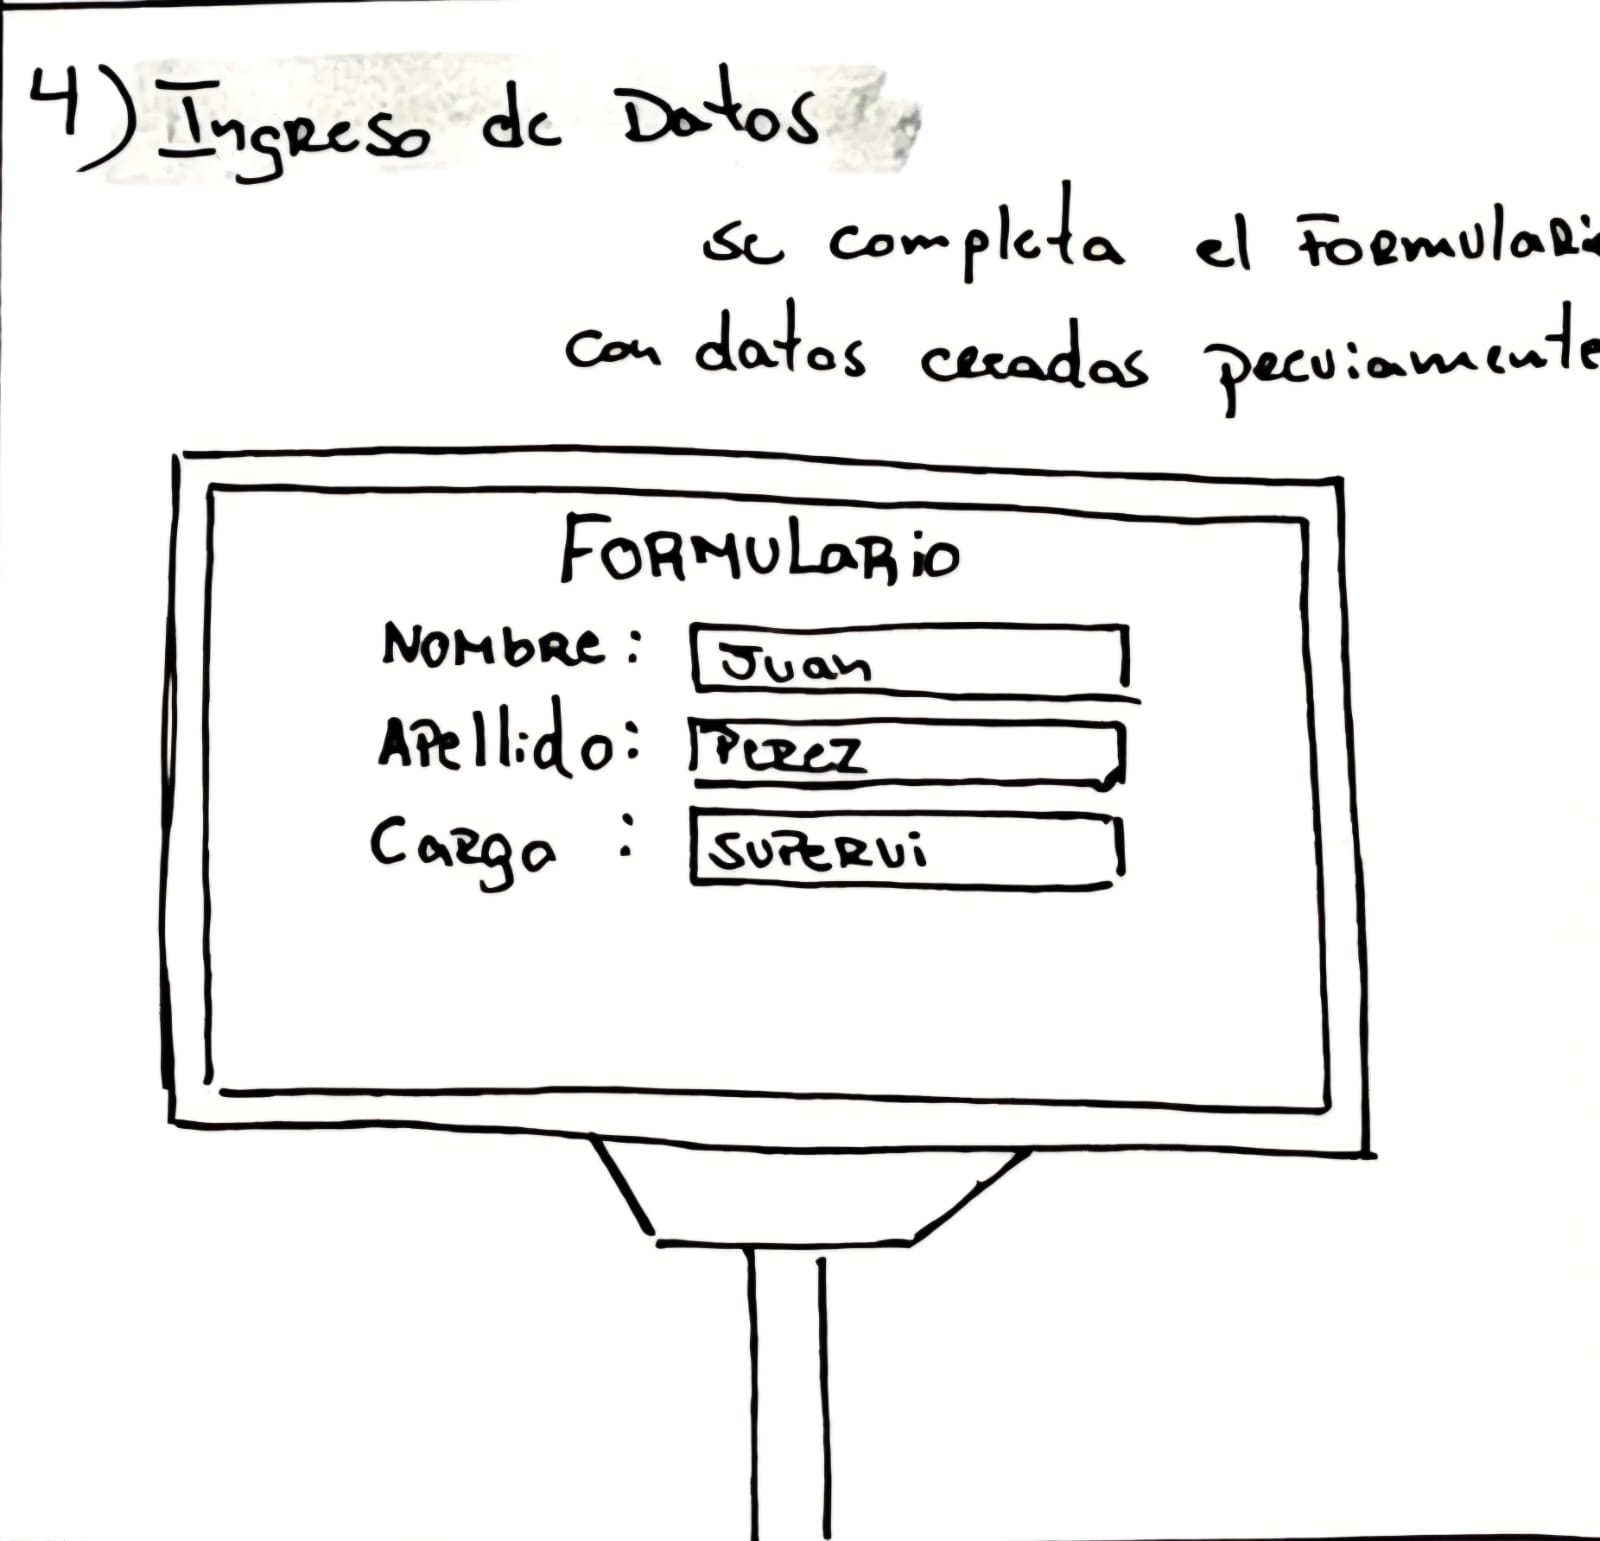 4) Ingreso de Datos
se completa el Formulari
con datos creados previamente
FORMULARIO
NOMBRE: Juan
Apellido: Perez
Cargo : SUPERVI